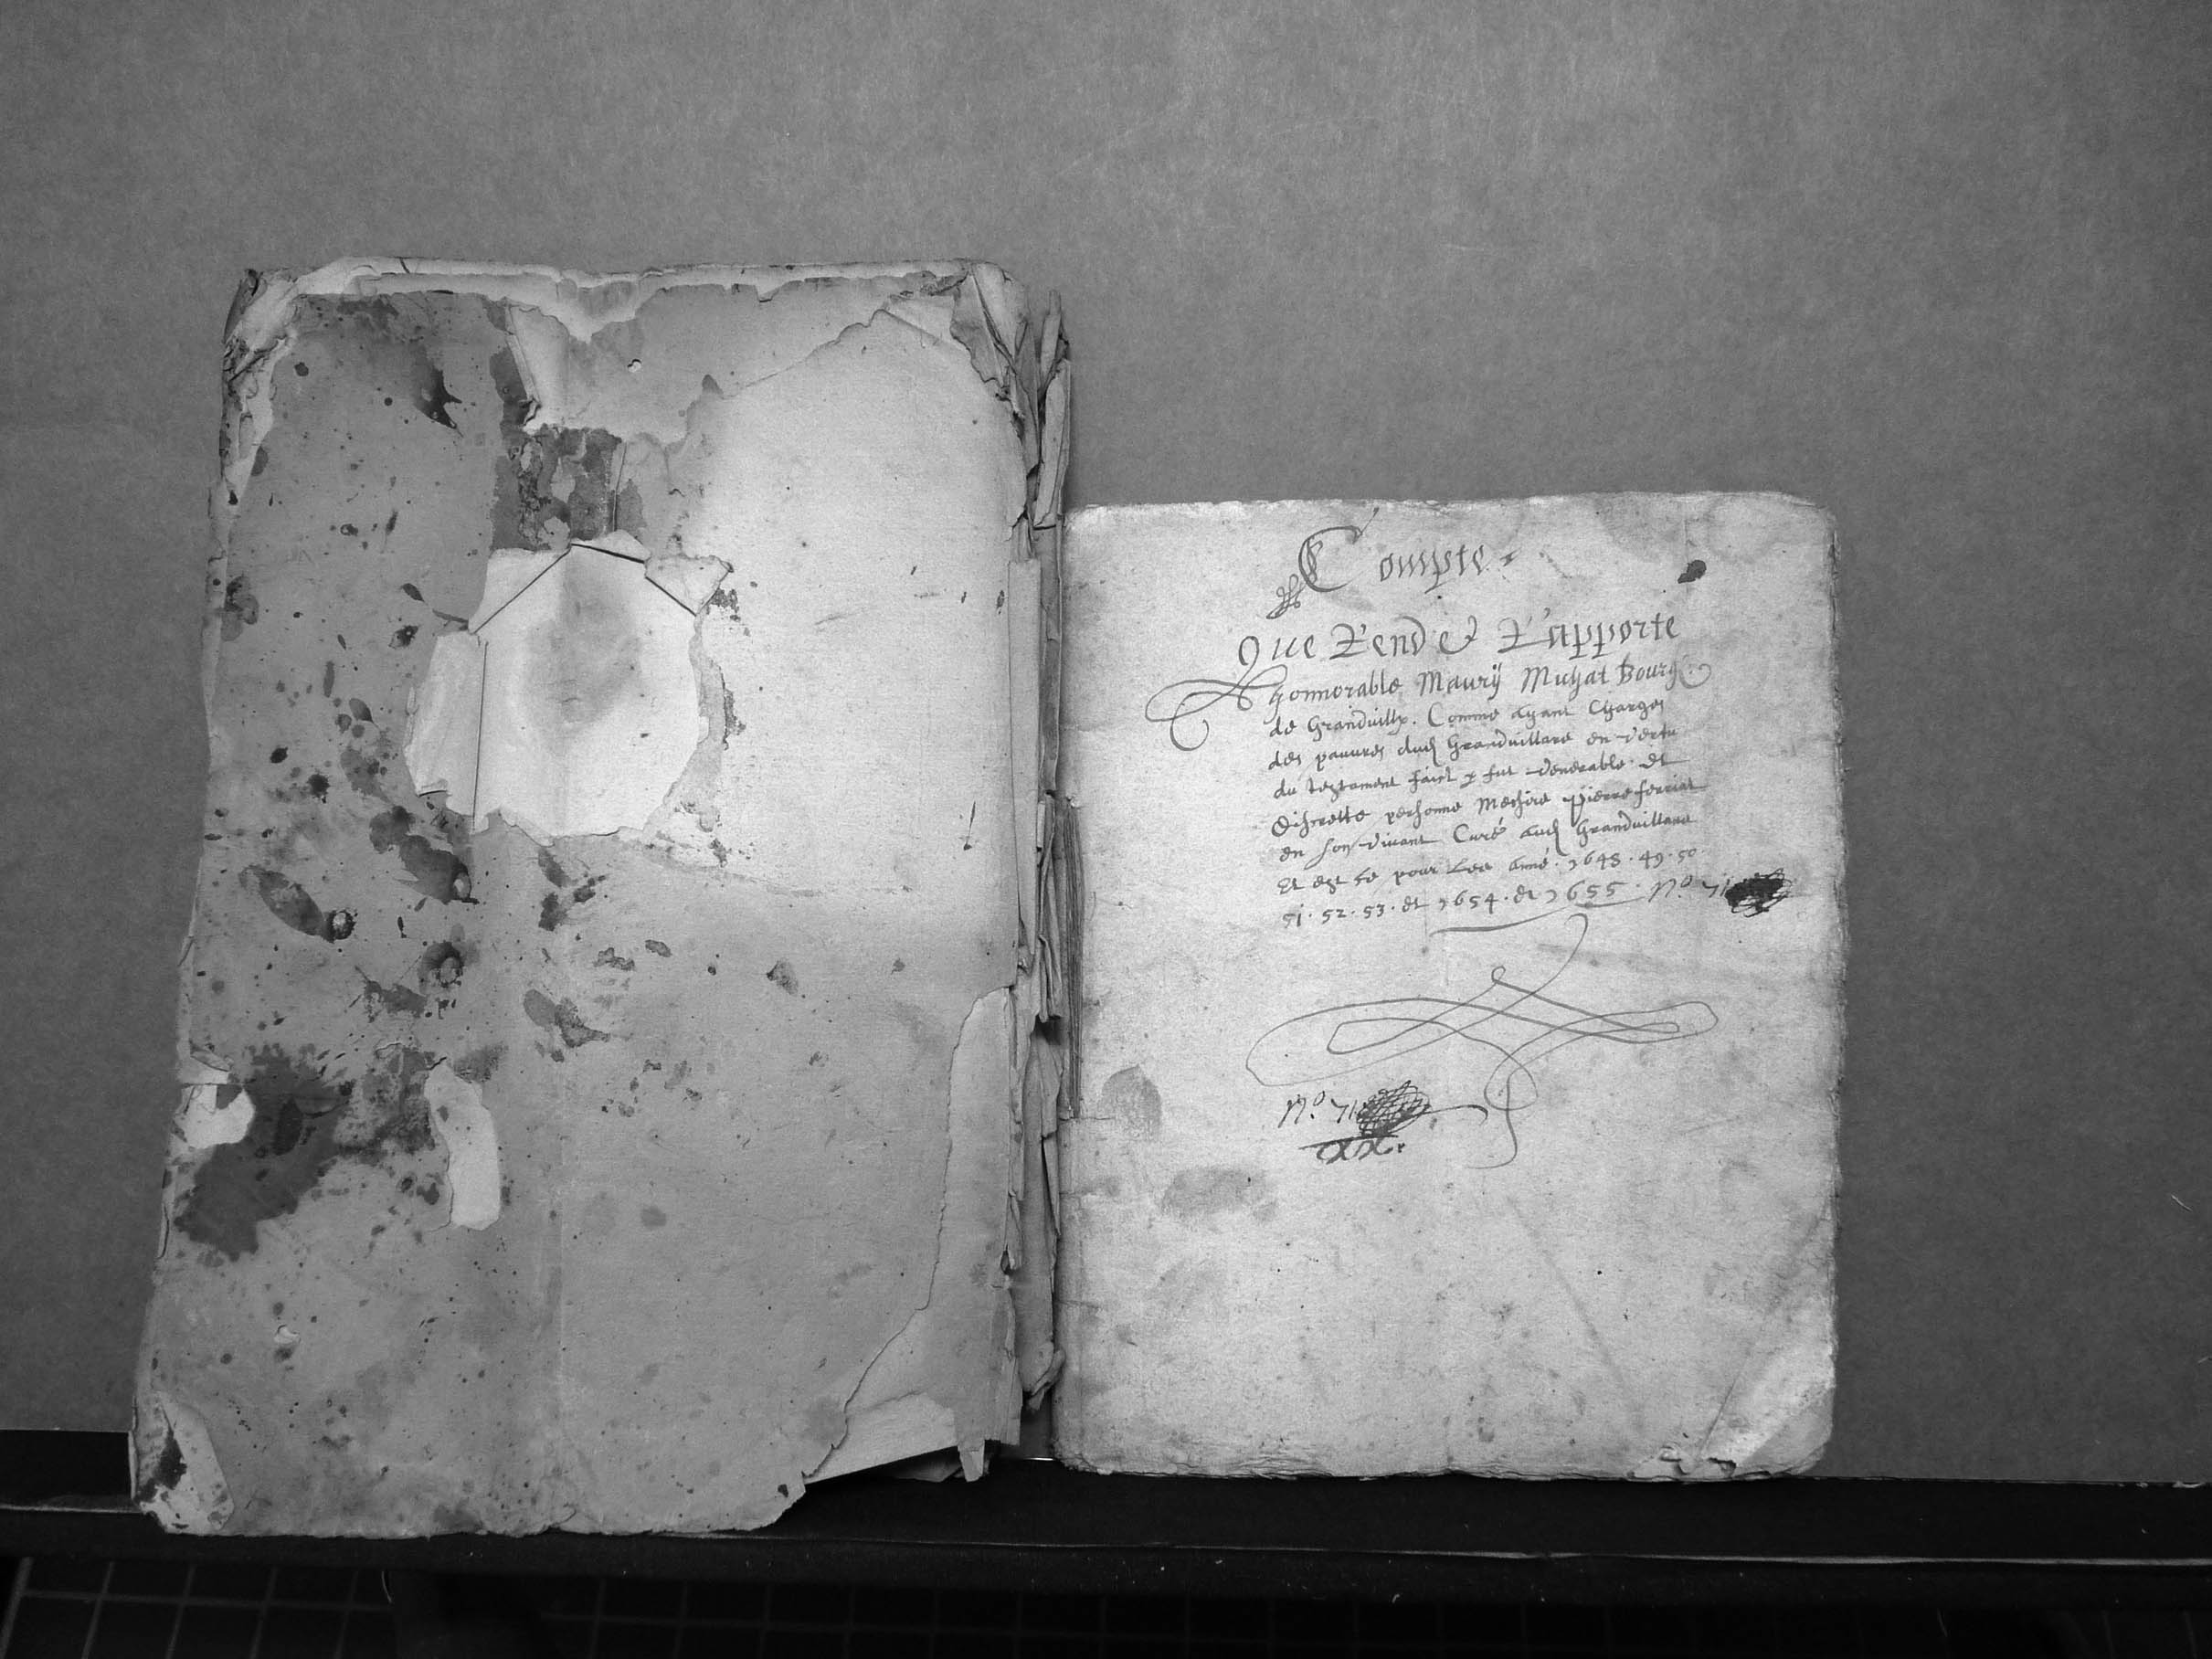 Compte
Que Rend et Rapporte
honnorable Maury Muhat Bourg
de Granduillr. Comme ayant Charges
des pauures dud Granduillars en vertu
du testament faict p fut venerable et
discrette personne Messire pierre ferriat
en son viuant Curé aud Granduillars
Et est ce pour Les Anné. 1648. 49. 50.
51. 52. 53. et 1654. et 1655. No. 71
No. 71